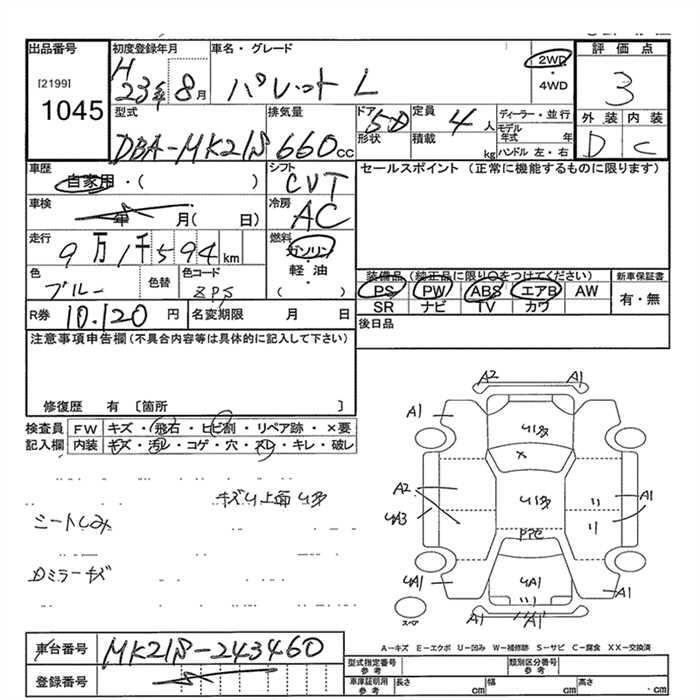 出品番号 初度登録年月 車名・グレード 評価点
[2199] H 2WD
1045 23年 8月 パレット L ・4WD 3
型式 排気量 ドア 定員 ディーラー・並行 外装 内装
DBA-MK21S 660cc 5D 4人 モデル年式 年 D C
形状 積載 kg ハンドル 左・右
車歴 シフト セールスポイント (正常に機能するものに限ります)
自家用・( ) CVT
車検 冷房
年 月( 日) AC
走行 燃料
9万1千594km ガソリン
色 色替 色コード ・軽油・ 装備品 (純正品に限り○をつけてください) 新車保証書
ブルー ZPS ( ) PS PW ABS エアB AW 有・無
SR ナビ TV カワ
R券 10.120円 名変期限 月 日 後日品
注意事項申告欄(不具合内容等は具体的に記入して下さい)
修復歴 有 〔箇所 〕
検査員 FW キズ・飛石・ヒビ割・リペア跡・×要
記入欄 内装 キズ・汚レ・コゲ・穴・スレ・キレ・破レ
キズU上面U多
シートしみ
Dミラーキズ
A2 A1
A1 U1多
×
A2 U1多 A1
UA3
UA1 UA1 A1
A1
スペア
A-キズ E-エクボ U-凹み W-補修跡 S-サビ C-腐食 XX-交換済
車台番号 MK21S-243460
登録番号
型式指定番号 参考 類別区分番号 参考
車庫証明用 参考 長さ cm 幅 cm 高さ ・cm